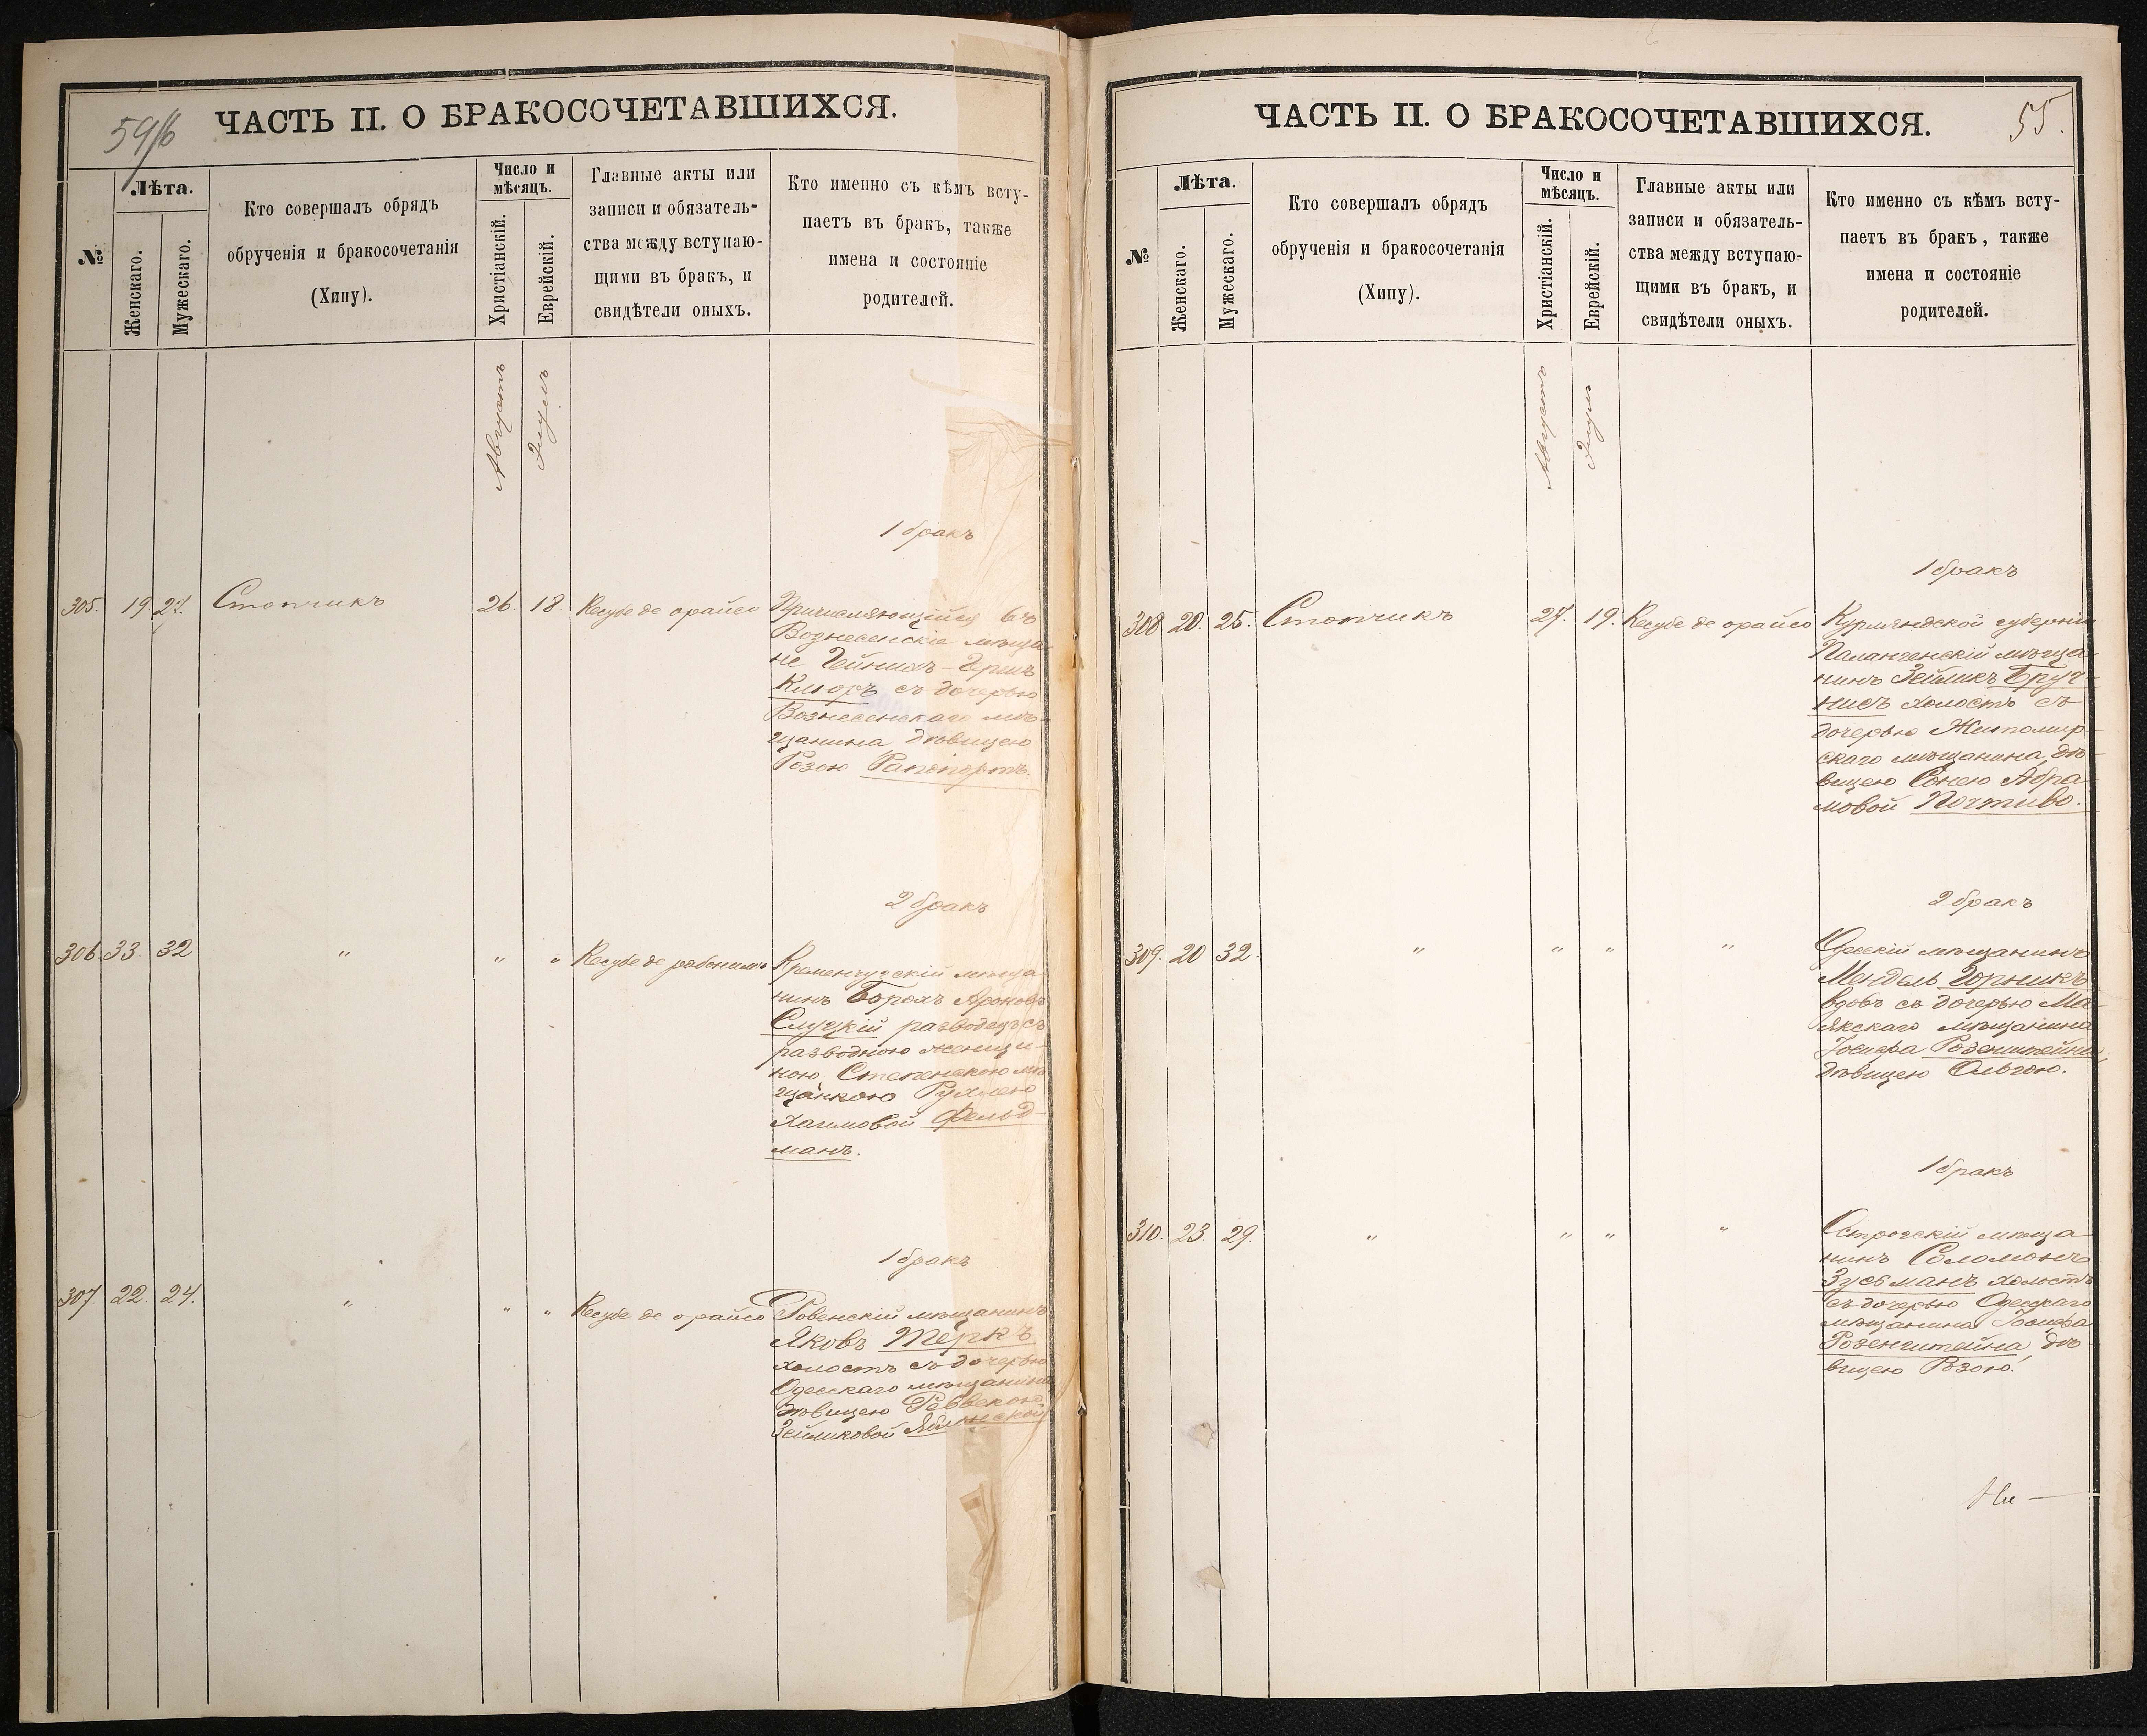 54/б
ЧАСТЬ II. О БРАКОСОЧЕТАВШИХСЯ.
№
Лѣта.
Женскаго.
Мужескаго.
Кто совершалъ обрядъ
обрученія и бракосочетанія
(Хипу).
Число и
мѣсяцъ.
Христіанскій.
Еврейскій.
Главные акты или
записи и обязатель-
ства между вступаю-
щими въ бракъ, и
свидѣтели оныхъ.
Кто именно съ кѣмъ всту-
паетъ въ бракъ, также
имена и состояніе
родителей.
Августъ
Элулъ
1 бракъ
305. 19. 27. Стопчикъ 26. 18. Кесубе де орайсо
Причисляющійся въ
Вознесенскіе мѣща-
не Гейнихъ-Гершъ
Клюръ съ дочерью
Вознесенскаго мѣ-
щанина, дѣвицею
Розою Рапопортъ.
2 бракъ
306. 33. 32 " " " Кесубе де рабонимъ
Кременчугскій мѣща-
нинъ Борохъ Ароновъ
Слуцкій разводецъ съ
разводною женщи-
ною Степенскою мѣ-
щанкою Рухлею
Хаимовой Фельд-
манъ.
1 бракъ
307. 22. 24. " " " Кесубе де орайсо
Ровенскій мѣщанинъ
Яковъ Теркъ
холостъ съ дочерью
Одесскаго мѣщанина
дѣвицею Реввекою
Зейликовой
ЧАСТЬ II. О БРАКОСОЧЕТАВШИХСЯ.
55.
№
Лѣта.
Женскаго.
Мужескаго.
Кто совершалъ обрядъ
обрученія и бракосочетанія
(Хипу).
Число и
мѣсяцъ.
Христіанскій.
Еврейскій.
Главные акты или
записи и обязатель-
ства между вступаю-
щими въ бракъ, и
свидѣтели оныхъ.
Кто именно съ кѣмъ всту-
паетъ въ бракъ, также
имена и состояніе
родителей.
Августъ
Элулъ
1 бракъ
308 20. 25. Стопчикъ 27. 19. Кесубе де орайсо
Курляндской губерніи
Палангенскій мѣща-
нинъ Зейликъ Бруч-
нисъ холостъ съ
дочерью Житомир-
скаго мѣщанина, дѣ-
вицею Сонею Абра-
мовой Почтиво.
2 бракъ
309. 20 32. " " " "
Одесскій мѣщанинъ
Мендель Горникъ
вдовъ съ дочерью Ма-
якскаго мѣщанина
Іосифа Розенштейна,
дѣвицею Ольгою.
1 бракъ
310. 23. 29. " " " "
Острогскій мѣща-
нинъ Соломонъ
Зусьманъ холостъ
съ дочерью Одесскаго
мѣщанина Іосифа
Розенштейна, дѣ-
вицею Розою.